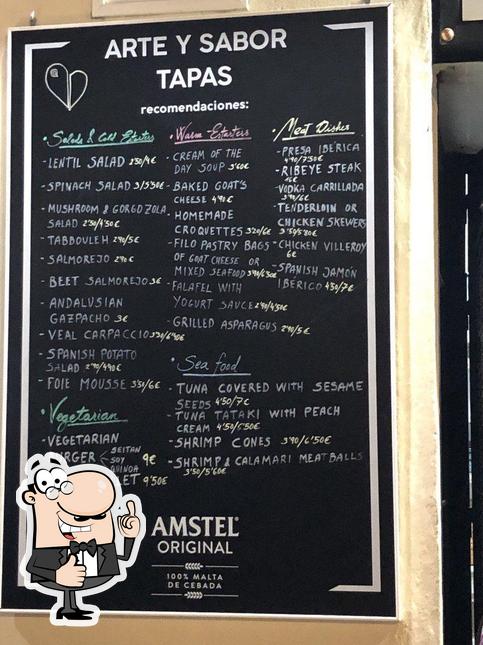 ARTE Y SABOR
TAPAS
recomendaciones:
• Salads & Cold Estarters
- LENTIL SALAD 2'50/4€
- SPINACH SALAD 3/5'50€
- MUSHROOM & GORGOZOLA
SALAD 2'50/4'50€
- TABBOULEH 2'90/5€
- SALMOREJO 2'90€
- BEET SALMOREJO 3€
- ANDALUSIAN
GAZPACHO 3€
- VEAL CARPACCIO
- SPANISH POTATO
SALAD 2'90/4'90€
- FOIE MOUSSE 3'50/6€
• Vegetarian
- VEGETARIAN
SEITAN
SOY
QUINOA
9€
9'50€
• Warm Estarters
- CREAM OF THE
DAY SOUP 3'60€
- BAKED GOAT'S
CHEESE 4'90€
- HOMEMADE
CROQUETTES 3'20/6€
- FILO PASTRY BAGS
OF GOAT CHEESE OR
MIXED SEAFOOD
- FALAFEL WITH
YOGURT SAUCE 2'90/4'50€
- GRILLED ASPARAGUS 2'90/5€
• Meat Dishes
- PRESA IBÉRICA
4'90/7'50€
- RIBEYE STEAK
- VODKA CARRILLADA
3'90/6€
- TENDERLOIN OR
CHICKEN SKEWERS
3'50/5'80€
- CHICKEN VILLEROY
6€
- SPANISH JAMÓN
IBERICO 4'50/7€
• Sea food
- TUNA COVERED WITH SESAME
SEEDS 4'50/7€
- TUNA TATAKI WITH PEACH
CREAM 4'50/5'50€
- SHRIMP CONES 3'90/6'50€
- SHRIMP & CALAMARI MEATBALLS
3'50/5'60€
AMSTEL
ORIGINAL
100% MALTA
DE CEBADA